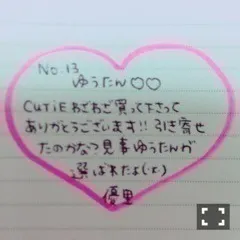 No.13
ゆうたん♡♡
CUTiEわざわざ買って下さって
ありがとうございます!! 引き寄せ
たのかなっ見事ゆうたんが
選ばれたよ
優里